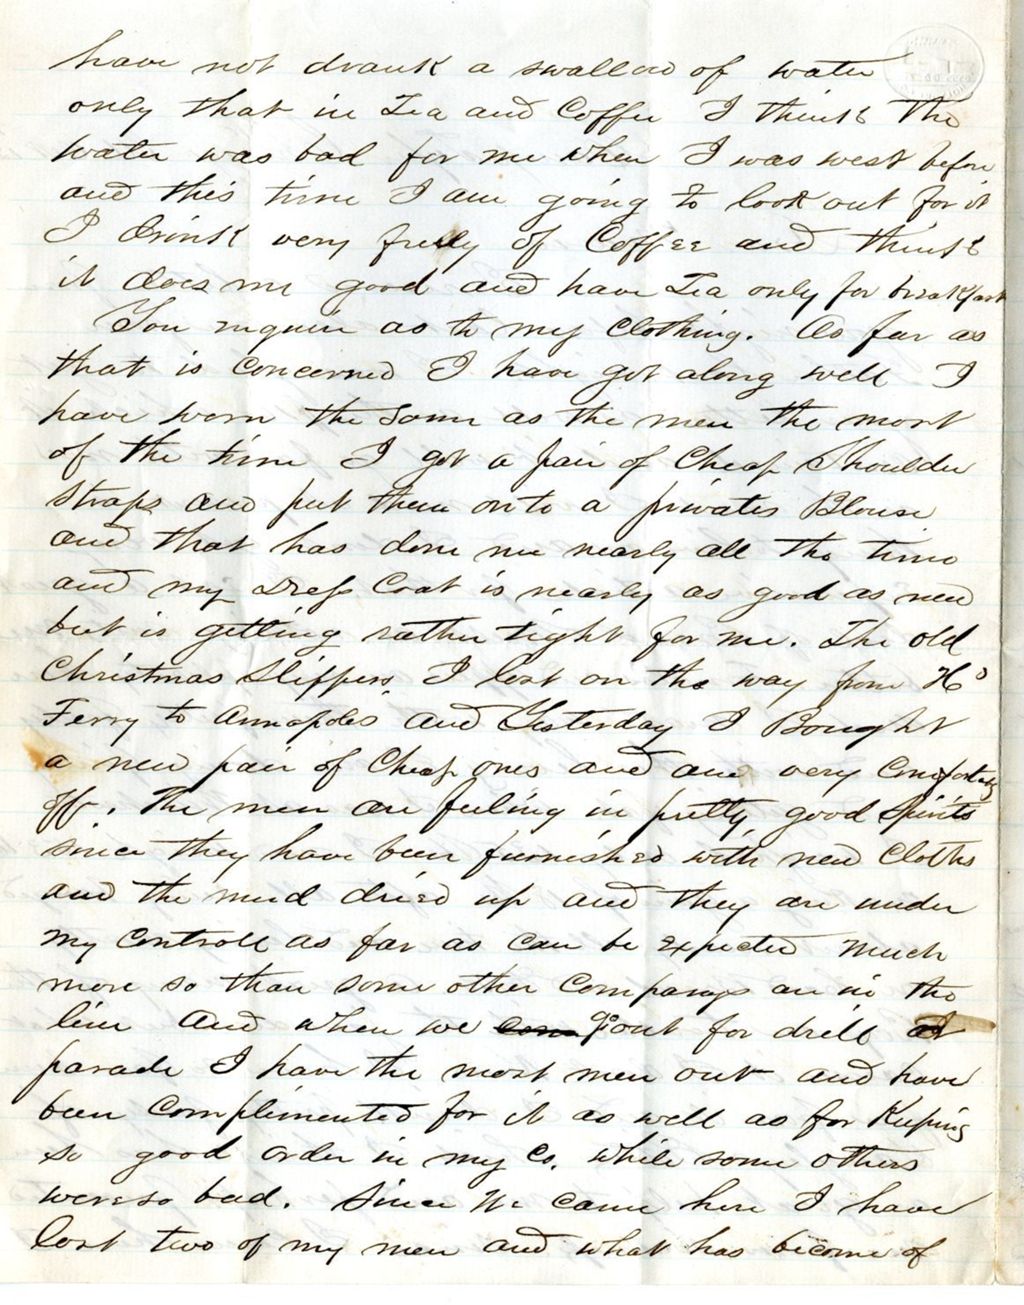 have not drank a swallow of water
only that in Tea and Coffee I think the
water was bad for me when I was west before
and this time I am going to look out for it
I drink very freely of Coffee and think
it does me good and have Tea only for breakfast
You enquire as to my Clothing. As far as
that is concerned I have got along well I
have worn the same as the men the most
of the time I got a pair of Cheap Shoulder
straps and put them onto a privates Blouse
and that has done me nearly all the time
and my Dress Coat is nearly as good as new
but is getting rather tight for me. The old
Christmas Slippers I lost on the way from H's
Ferry to Annapolis and Yesterday I Bought
a new pair of Cheap ones and am very Comfortably
off. The men are feeling in pretty good Spirits
since they have been furnished with new Cloths
and the mud dried up and they are under
my Controll as far as can be expected much
more so than some other Companys are in the
line And when we go out for drill or
parade I have the most men out and have
been Complimented for it as well as for Keeping
so good order in my Co. while some others
were so bad. Since We came here I have
lost two of my men and what has become of